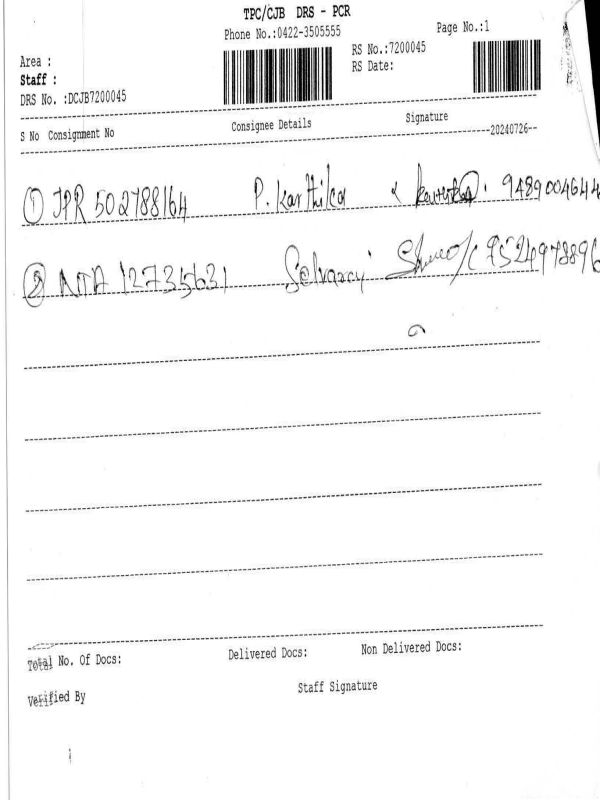 TPC/CJB DRS - PCR
Phone No.:0422-3505555
Page No.:1
Area :
RS No.:7200045
Staff :
RS Date:
DRS No. :DCJB7200045
S No Consignment No
Consignee Details
Signature
--20240726--
① JPR 502788164 P. Karthika 9489004644
② NTA 12735631 Selvaraj 9524978896
Total No. Of Docs:
Delivered Docs:
Non Delivered Docs:
Verified By
Staff Signature